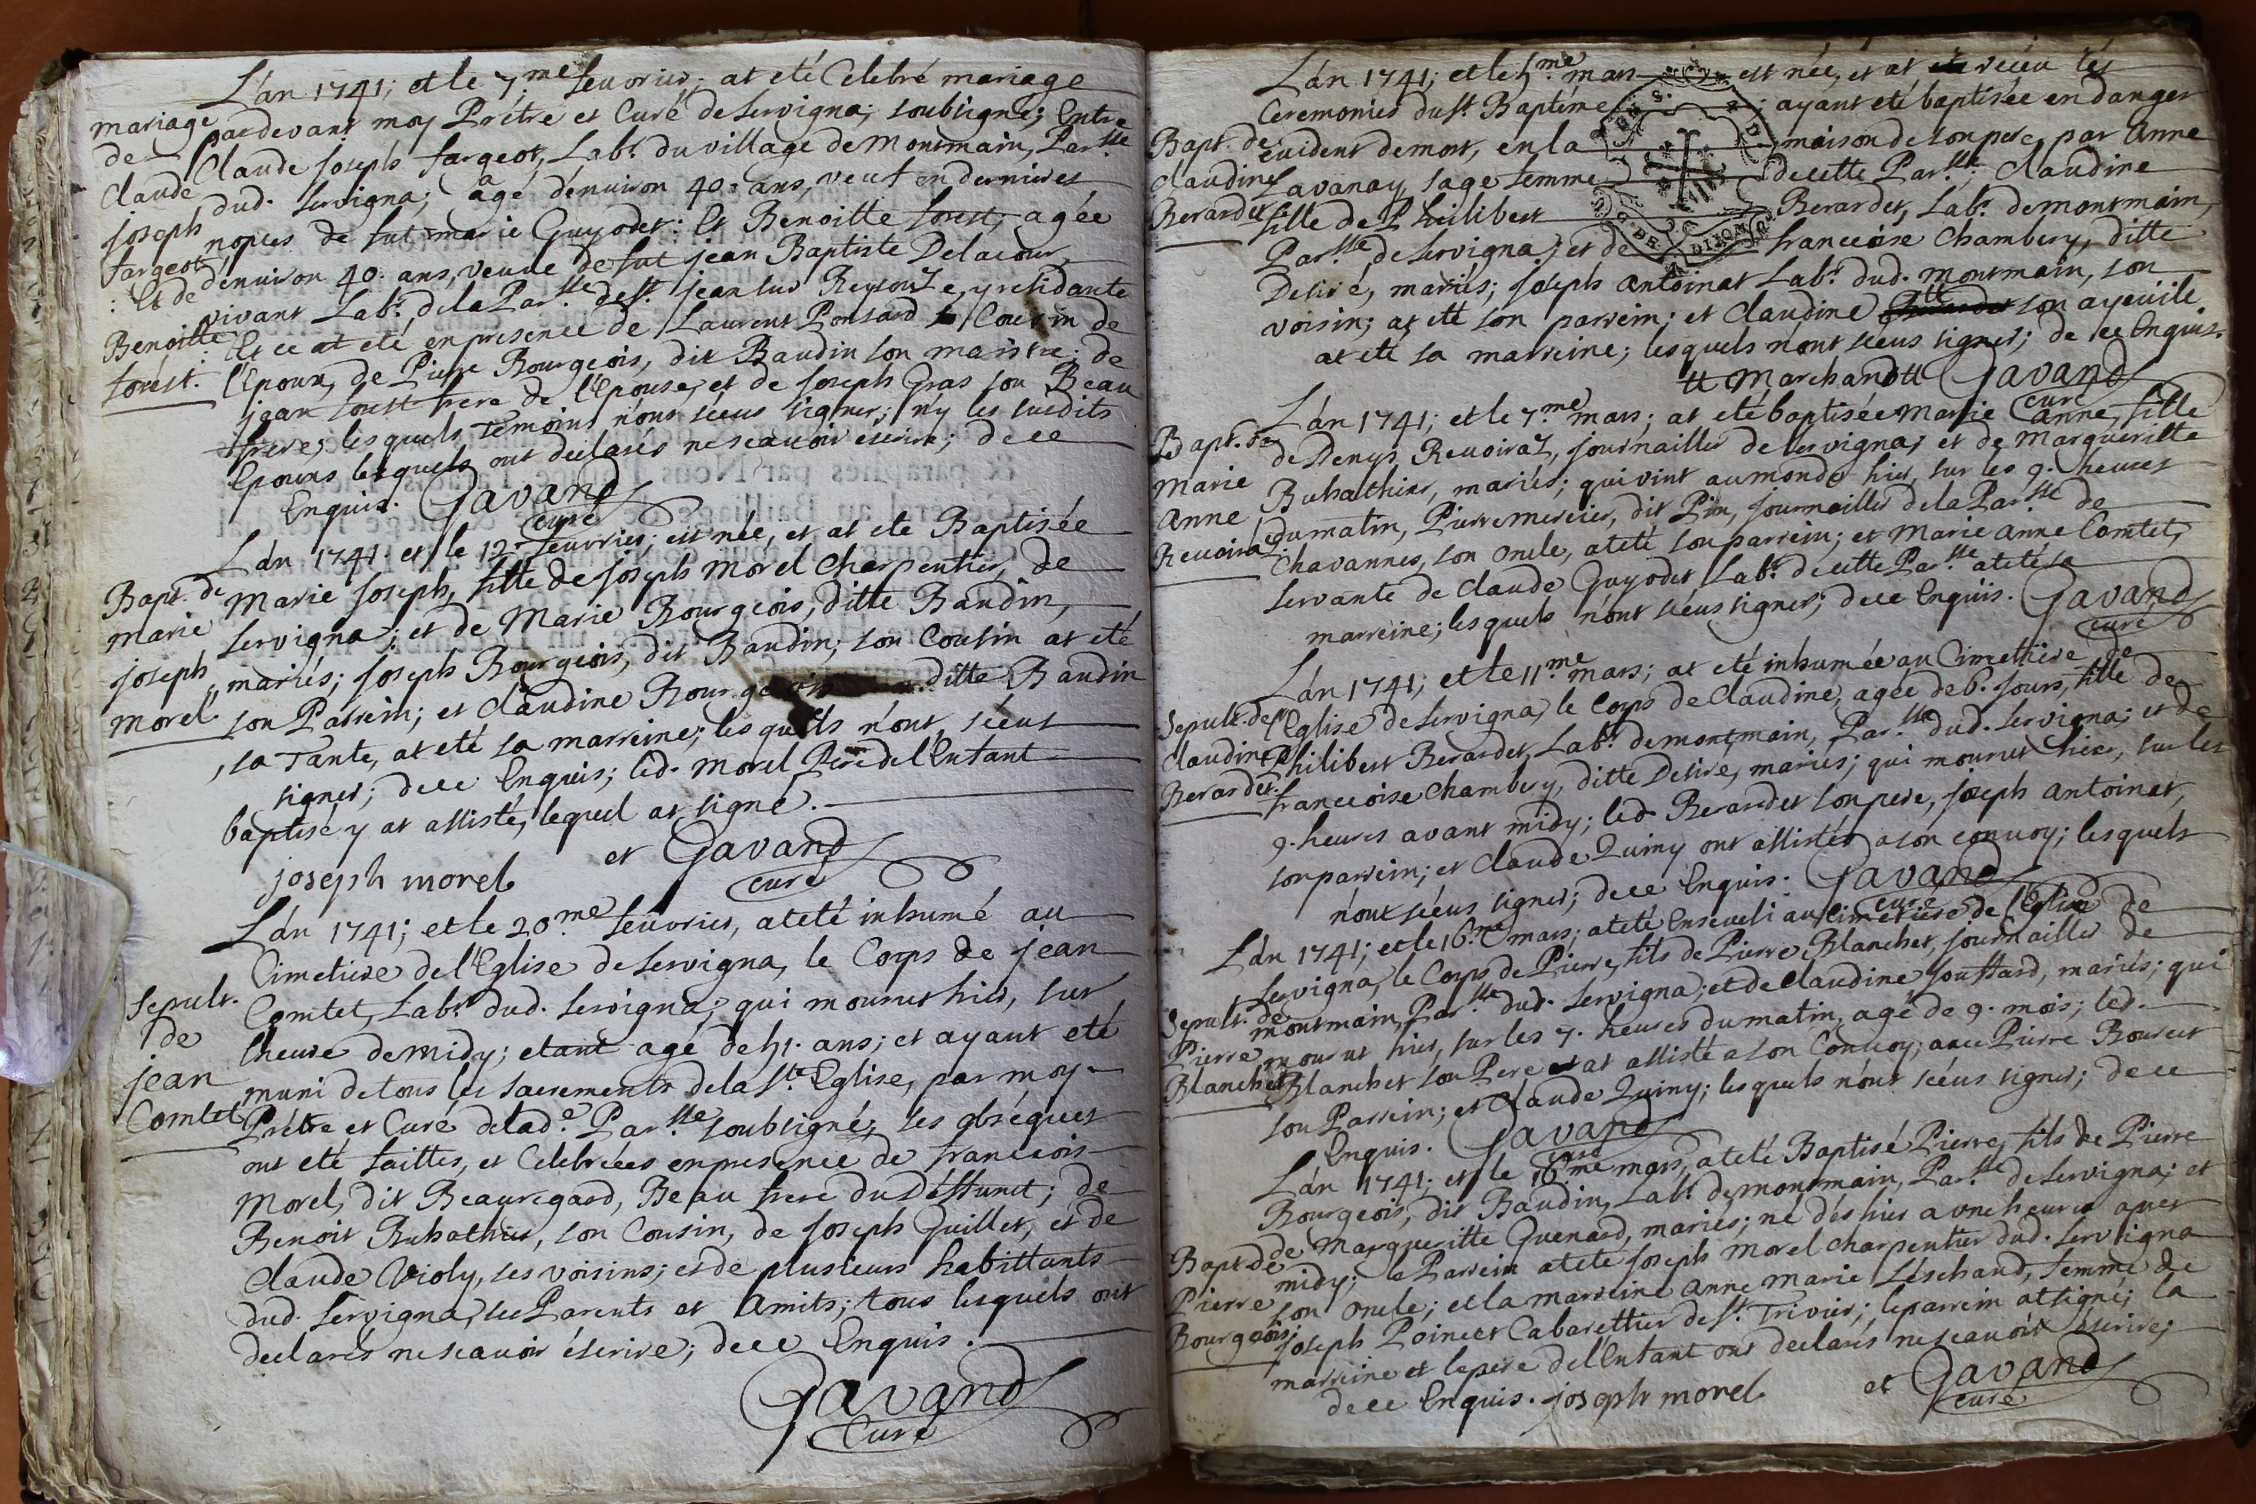 L'an 1741; et le 7.me feuvrier; at eté Celebré mariage
mariage pardevant moy Prétre et Curé de Servigna; soubsigné; Entre
de Claude joseph fargeot, Lab.r du village de Montmain, Par.sse
Claude dud. Servigna; agé d'enuiron 40. ans, veuf en dernieres
joseph nopces de fut marie Guyodet: Et Benoitte forest, agée
fargeot d'enuiron 40. ans, veuve de fut jean Baptiste Delacour,
: Et de vivant Lab.r dela Par.sse de S.t jean sur Reyssouze, y residante
Benoitte Et ce at eté en presence de Laurent Ponsard Cousin de
forest. l'Epoux, de Pierre Bourgeois, dit Baudin son maistre; de
jean forest frere de l'Epouse, et de joseph Gras son Beau
frere, lesquels Temoins n'ont scëus signer; n'y les susdits
Epoux lesquels ont declarés ne scavoir éscrire; de ce
Enquis. Gavand
curé
L'an 1741. et le 12. feuvrier; est née, et at ete Baptisée
Bapt. de Marie joseph, fille de joseph Morel Charpentier, de
marie Servigna; et de Marie Bourgeois, ditte Baudin,
joseph mariés; joseph Bourgeois, dit Baudin; son Cousin at eté
morel son Parrein; et Claudine Bourgeois ditte Baudin
, sa Tante, at eté sa marreine; lesquels n'ont scëus
signer; de ce Enquis; led. Morel Pere de l'Enfant
baptisé y at assisté, lequel at signé.
joseph morel et Gavand
curé
L'an 1741; et le 20.me feuvrier, at eté inhumé au
Cimetiere de l'Eglise de Servigna, le Corps de jean
Sepult. Comtet, Lab.r dud. Servigna; qui mourut hier, sur
de l'heure de midy; etant agé de 51. ans; et ayant eté
jean muni de tous les sacrements de la S.te Eglise, par moy
Comtet Prétre et Curé de lad.e Par.sse soubsigné; ses obséques
ont eté faittes, et Celebrées en presence de francois
Morel, dit Beauregard, Beau frere du Deffunct; de
Benoit Buhathier, son Cousin, de joseph Guillet, et de
Claude Violy, ses voisins; et de plusieurs habittants
dud. Servigna, ses Parents et Amits; tous lesquels ont
declarés ne scavoir éscrire; de ce Enquis.
Gavand
Curé
L'an 1741; et le 5.me mars est née, et at receu les
Ceremonies du S.t Baptéme ; ayant eté baptisée en danger
Bapt. de euident de mort, en la maison de son pere, par Anne
Claudine Lavanay, sage femme de cette Par.sse; Claudine
Berardet fille de Philibert Berardet, Lab.r de montmain,
Par.sse de Servigna; et de francoise Chambery, ditte
Desiré, mariés; joseph Antoinat Lab.r dud. Montmain, son
voisin; at eté son parrein; et Claudine son ayeulle
at eté sa marreine; lesquels n'ont scëus signer; de ce Enquis.
Marchand Gavand
curé
L'an 1741; et le 7.me mars; at eté baptisée Marie Anne, fille
Bapt. de de Denys Reuoiraz, journaillier de Servigna; et de Margueritte
Marie Buhathier, mariés; qui vint au monde hier, sur les 9. heures
Anne du matin, Pierre mercier, dit Pin, journaillier dela Par.sse de
Reuoiraz Chavannes, son Oncle, at eté son parrein; et Marie Anne Comtet,
servante de Claude Guyodet Lab.r de cette Par.sse at eté sa
marreine; lesquels n'ont scëus signer; de ce Enquis. Gavand
curé
L'an 1741; et le 11.me mars; at eté inhumée au Cimettiere de
Sepult. de l'Eglise de Servigna, le Corps de Claudine, agée de 6. jours, fille de
Claudine Philibert Berardet, Lab.r de montmain, Par.sse dud. Servigna; et de
Berardet. francoise Chambery, ditte Desire, mariés; qui mourut hier, sur les
9. heures avant midy; led. Berardet son pere, joseph Antoinat,
son parrein; et Claude Quiny ont assistés a son convoy; lesquels
n'ont scëus signer; de ce Enquis. Gavand
curé
L'an 1741; et le 16.me mars; at eté Enseveli au Cimetiere de l'Eglise de
Servigna, le Corps de Pierre, fils de Pierre Blanchet, journaillier de
Sepult. de montmain, Par.sse dud. Servigna; et de Claudine Jouffard, mariés; qui
Pierre mourut hier, sur les 7. heures du matin, agé de 9. mois; led.
Blanchet Blanchet son Pere at assisté a son Convoy; avec Pierre Bourcet
son Parrein; et Claude Quiny; lesquels n'ont scëus signer; de ce
Enquis. Gavand
curé
L'an 1741; et le 16.me mars, at eté Baptisé Pierre, fils de Pierre
Bourgeois, dit Baudin, Lab.r de montmain, Par.sse de Servigna; et
Bapt. de de Margueritte Guenard, mariés; né dés hier a vne heure apres
Pierre midy; le Parrein at eté joseph Morel charpentier dud. Servigna
Bourgeois; son Oncle; et la marreine Anne Marie Léschaud, femme de
joseph Poincet Cabarettier de S.t Trivier; le parrein at signé; la
marreine et le pere de l'Enfant ont declarés ne scavoir éscrire;
de ce Enquis. joseph morel et Gavand
curé